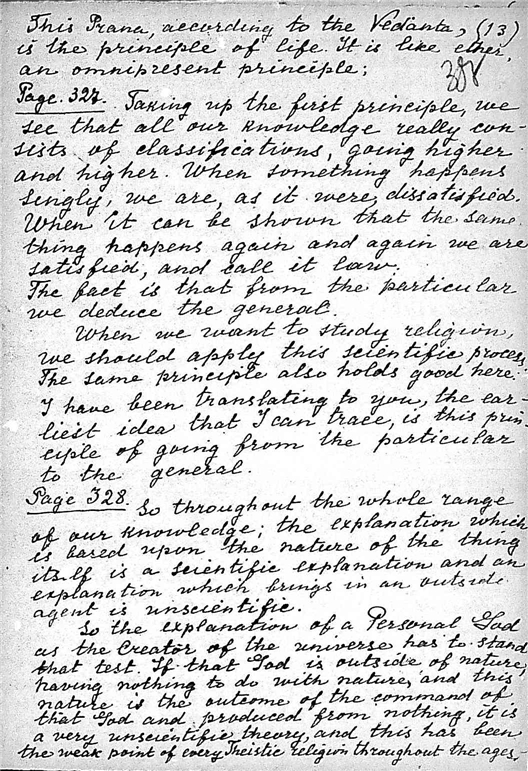 This Prana, according to the Vedanta, (13)
is the principle of life. It is like ether,
an omnipresent principle;
Page. 327. Taking up the first principle, we
see that all our knowledge really con-
sists of classifications, going higher
and higher. When something happens
singly, we are, as it were, dissatisfied.
When it can be shown that the same
thing happens again and again we are
satisfied, and call it law.
The fact is that from the particular
we deduce the general.
When we want to study religion,
we should apply this scientific process.
The same principle also holds good here.
I have been translating to you, the ear-
liest idea that I can trace, is this prin-
ciple of going from the particular
to the general.
Page 328. So throughout the whole range
of our knowledge; the explanation which
is based upon the nature of the thing
itself is a scientific explanation and an
explanation which brings in an outside
agent is unscientific.
So the explanation of a Personal God
as the Creator of the universe has to stand
that test. If that God is outside of nature,
having nothing to do with nature, and this
nature is the outcome of the command of
that God and produced from nothing, it is
a very unscientific theory, and this has been
the weak point of every Theistic religion throughout the ages.